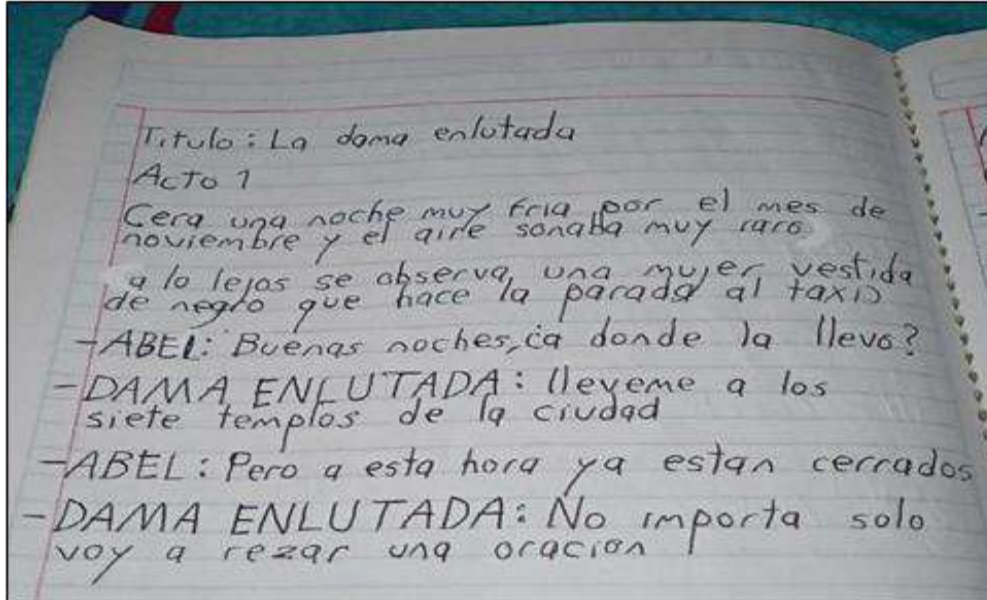 Titulo: La dama enlutada
ACTO 1
Cera una noche muy fria por el mes de
noviembre y el aire sonaba muy raro
a lo lejos se observa una mujer vestida
de negro que hace la parada al taxi)
-ABEL: Buenas noches,¿a donde la llevo?
-DAMA ENLUTADA: lleveme a los
siete templos de la ciudad
-ABEL: Pero a esta hora ya estan cerrados
-DAMA ENLUTADA: No importa solo
voy a rezar una oracion